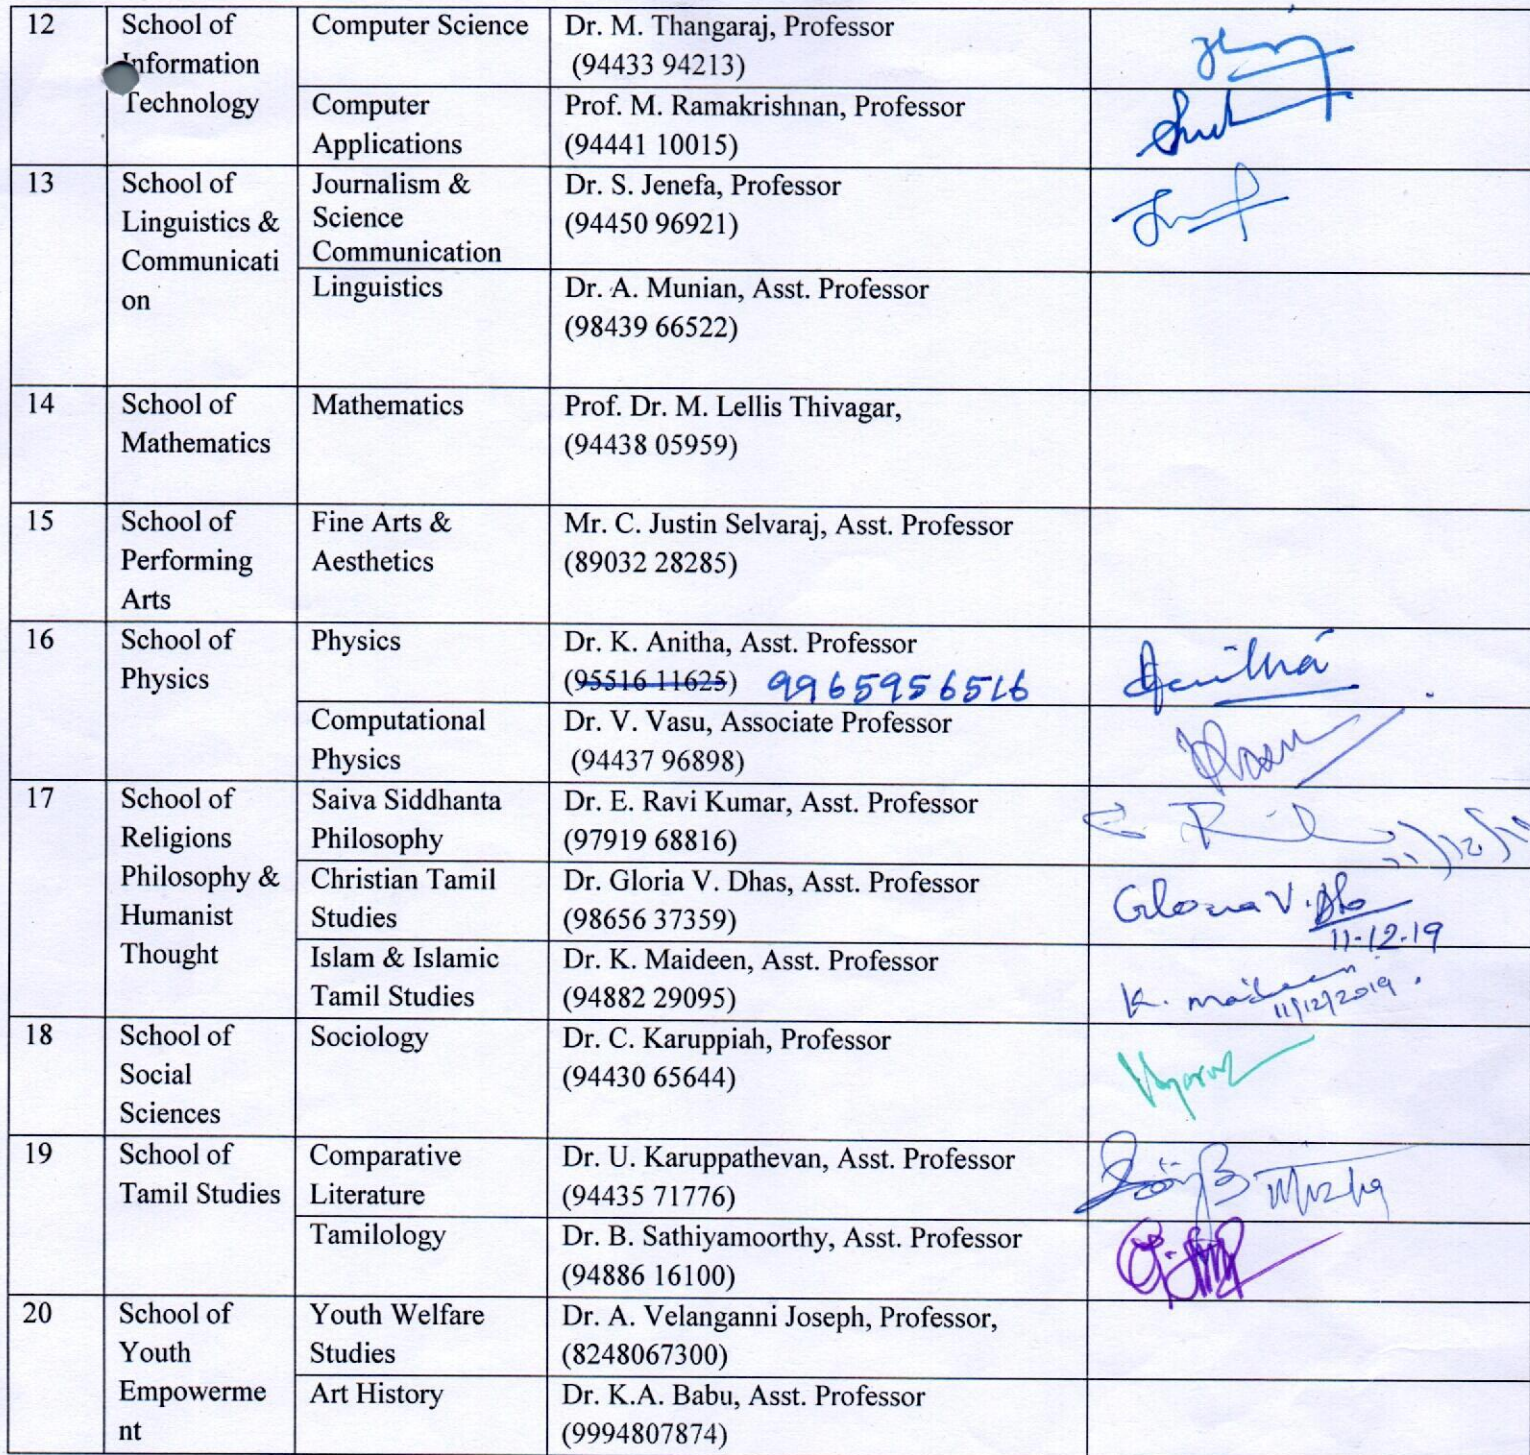 12
School of
Information
Technology
Computer Science
Dr. M. Thangaraj, Professor
(94433 94213)
Computer
Applications
Prof. M. Ramakrishnan, Professor
(94441 10015)
13
School of
Linguistics &
Communicati
on
Journalism &
Science
Communication
Dr. S. Jenefa, Professor
(94450 96921)
Linguistics
Dr. A. Munian, Asst. Professor
(98439 66522)
14
School of
Mathematics
Mathematics
Prof. Dr. M. Lellis Thivagar,
(94438 05959)
15
School of
Performing
Arts
Fine Arts &
Aesthetics
Mr. C. Justin Selvaraj, Asst. Professor
(89032 28285)
16
School of
Physics
Physics
Dr. K. Anitha, Asst. Professor
(95516 11625) 9965956516
Anitha
Computational
Physics
Dr. V. Vasu, Associate Professor
(94437 96898)
17
School of
Religions
Philosophy &
Humanist
Thought
Saiva Siddhanta
Philosophy
Dr. E. Ravi Kumar, Asst. Professor
(97919 68816)
Christian Tamil
Studies
Dr. Gloria V. Dhas, Asst. Professor
(98656 37359)
Gloria V.
11-12-19
Islam & Islamic
Tamil Studies
Dr. K. Maideen, Asst. Professor
(94882 29095)
K. Maideen
11/12/2019
18
School of
Social
Sciences
Sociology
Dr. C. Karuppiah, Professor
(94430 65644)
19
School of
Tamil Studies
Comparative
Literature
Dr. U. Karuppathevan, Asst. Professor
(94435 71776)
Tamilology
Dr. B. Sathiyamoorthy, Asst. Professor
(94886 16100)
20
School of
Youth
Empowerme
nt
Youth Welfare
Studies
Dr. A. Velanganni Joseph, Professor,
(8248067300)
Art History
Dr. K.A. Babu, Asst. Professor
(9994807874)